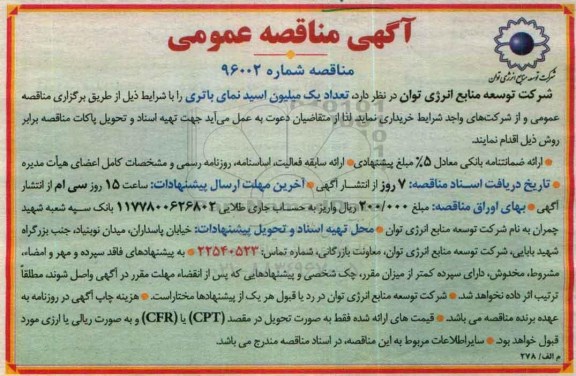 آگهی مناقصه عمومی
مناقصه شماره ۹۶۰۰۲
شرکت توسعه منابع انرژی توان
شرکت توسعه منابع انرژی توان در نظر دارد، تعداد یک میلیون اسید نمای باتری را با شرایط ذیل از طریق برگزاری مناقصه
عمومی و از شرکت‌های واجد شرایط خریداری نماید. لذا از متقاضیان دعوت به عمل می‌آید جهت تهیه اسناد و تحویل پاکات مناقصه برابر
روش ذیل اقدام نمایند.
● ارائه ضمانتنامه بانکی معادل ۵% مبلغ پیشنهادی ● ارائه سابقه فعالیت، اساسنامه، روزنامه رسمی و مشخصات کامل اعضای هیأت مدیره
● تاریخ دریافت اسناد مناقصه: ۷ روز از انتشار آگهی ● آخرین مهلت ارسال پیشنهادات: ساعت ۱۵ روز سی ام از انتشار
آگهی ● بهای اوراق مناقصه: مبلغ ۲۰۰/۰۰۰ ریال واریز به حساب جاری طلایی ۱۱۷۷۸۰۰۶۲۶۸۰۲ بانک سپه شعبه شهید
چمران به نام شرکت توسعه منابع انرژی توان ● محل تهیه اسناد و تحویل پیشنهادات: خیابان پاسداران، میدان نوبنیاد، جنب بزرگراه
شهید بابایی، شرکت توسعه منابع انرژی توان، معاونت بازرگانی، شماره تماس: ۲۲۵۴۰۵۲۳ ● به پیشنهادهای فاقد سپرده و مهر و امضاء،
مشروط، مخدوش، دارای سپرده کمتر از میزان مقرر، چک شخصی و پیشنهادهایی که پس از انقضاء مهلت مقرر در آگهی واصل شوند، مطلقاً
ترتیب اثر داده نخواهد شد. ● شرکت توسعه منابع انرژی توان در رد یا قبول هر یک از پیشنهادها مختار است. ● هزینه چاپ آگهی در روزنامه به
عهده برنده مناقصه می باشد. ● قیمت های ارائه شده فقط به صورت تحویل در مقصد (CPT) یا (CFR) و به صورت ریالی یا ارزی مورد
قبول خواهد بود. ● سایر اطلاعات مربوط به این مناقصه، در اسناد مناقصه مندرج می باشد.
م الف/ ۲۷۸